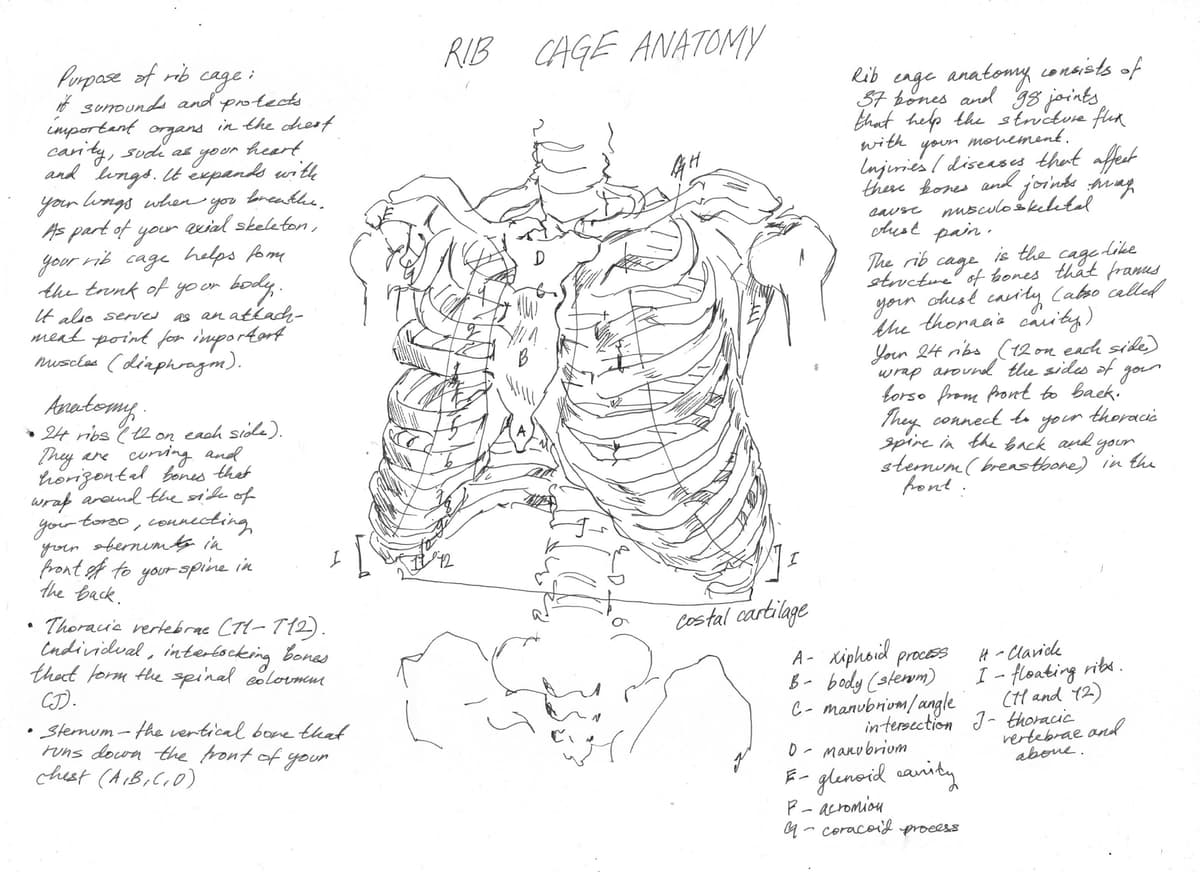 RIB CAGE ANATOMY
Purpose of rib cage:
it surrounds and protects
important organs in the chest
cavity, such as your heart
and lungs. It expands with
your lungs when you breathe.
As part of your axial skeleton,
your rib cage helps form
the trunk of your body.
It also serves as an attach-
ment point for important
muscles (diaphragm).
Anatomy.
• 24 ribs (12 on each side).
They are curving and
horizontal bones that
wrap around the side of
your torso, connecting
your sternum in
front to your spine in
the back.
• Thoracic vertebrae (T1-T12).
Individual, interlocking bones
that form the spinal coloumn
(J).
• Sternum - the vertical bone that
runs down the front of your
chest (A,B,C,D)
Rib cage anatomy consists of
37 bones and 98 joints
that help the structure flex
with your movement.
Injuries/diseases that affect
these bones and joints may
cause musculoskeletal
chest pain.
The rib cage is the cage-like
structure of bones that frames
your chest cavity (also called
the thoracic cavity)
Your 24 ribs (12 on each side)
wrap around the sides of your
torso from front to back.
They connect to your thoracic
spine in the back and your
sternum (breastbone) in the
front.
H
E
G
D
C
B
A
E
J
I
I
12
costal cartilage
A - xiphoid process
B - body (sternum)
C - manubrium/angle
intersection
D - manubrium
E - glenoid cavity
F - acromion
G - coracoid process
H - Clavicle
I - floating ribs.
(11 and 12)
J - thoracic
vertebrae and
above.